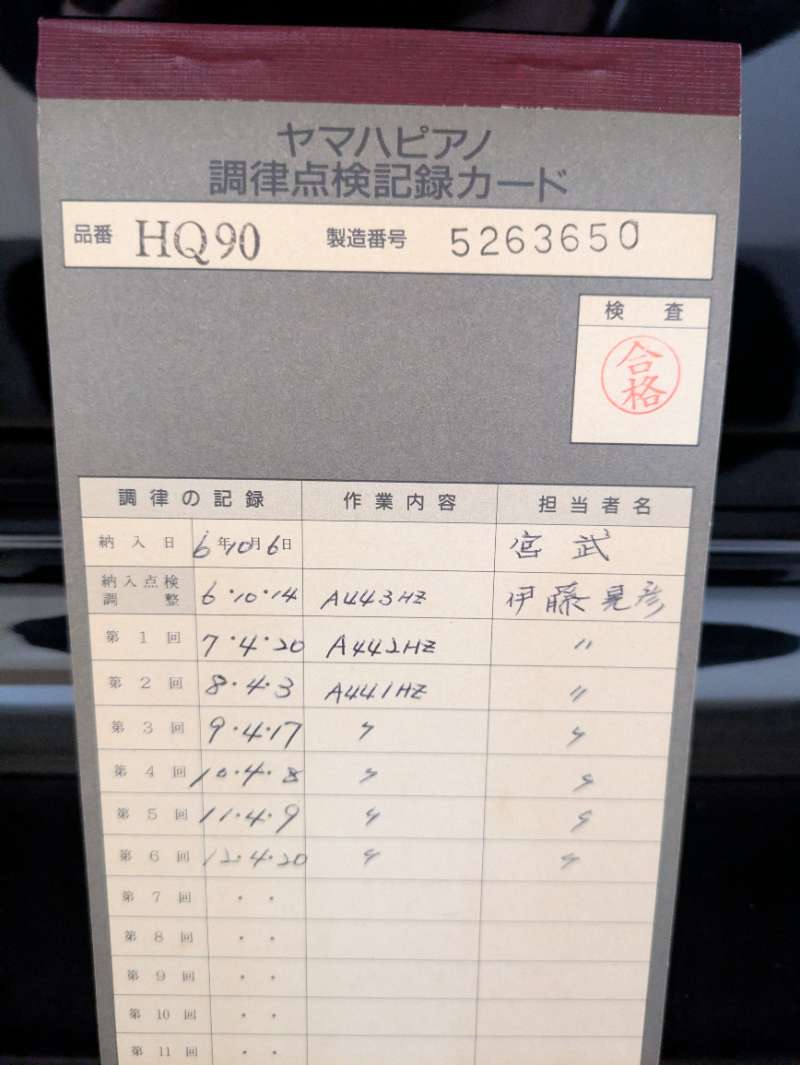 ヤマハピアノ
調律点検記録カード
品番 HQ90 製造番号 5263650
検 査
合格
調律の記録 作業内容 担当者名
納入日 6年10月6日 宮武
納入点検調整 6・10・14 A443HZ 伊藤晃彦
第1回 7・4・20 A442HZ 〃
第2回 8・4・3 A441HZ 〃
第3回 9・4・17 〃 〃
第4回 10・4・8 〃 〃
第5回 11・4・9 〃 〃
第6回 12・4・20 〃 〃
第7回 ・ ・
第8回 ・ ・
第9回 ・ ・
第10回 ・ ・
第11回 ・ ・